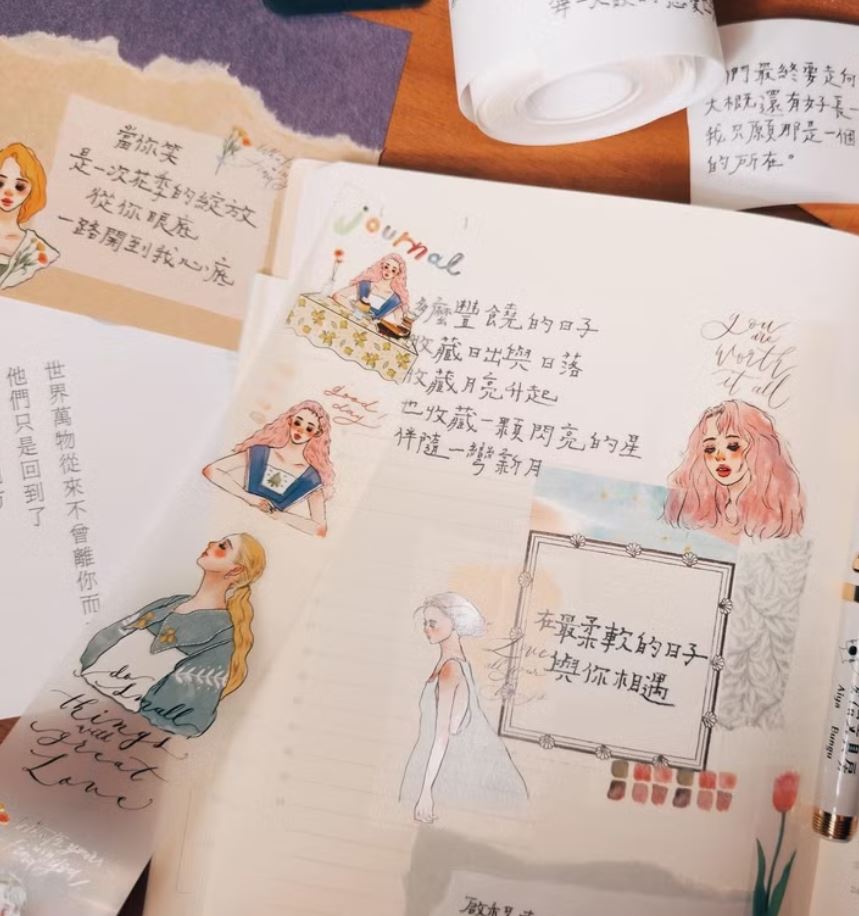 當你笑
是一次花季的綻放
從你眼底
一路開到我心底
門最終要走向
大概還有好長一
我只願那是一個
的所在。
journal
多麼豐饒的日子
收藏日出與日落
收藏月亮升起
也收藏一顆閃亮的星
伴隨一彎新月
good
day
you
are
worth
it all
世界萬物從來不曾離你而
他們只是回到了
在最柔軟的日子
與你相遇
do
small
things
with
great
Love
Aiya Bungu